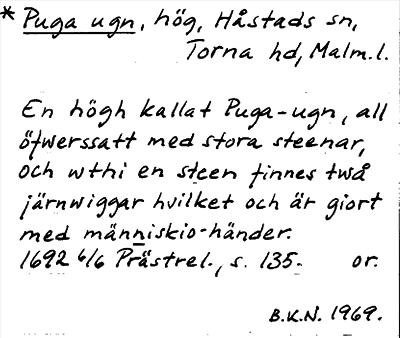 * Puga ugn, hög, Håstads sn,
Torna hd, Malm.l.
En högh kallat Puga-ugn, all
öfwerssatt med stora steenar,
och wthi en steen finnes twå
järnwiggar hvilket och är giort
med människio-händer.
1692 6/6 Prästrel., s. 135. or.
B.K.N. 1969.